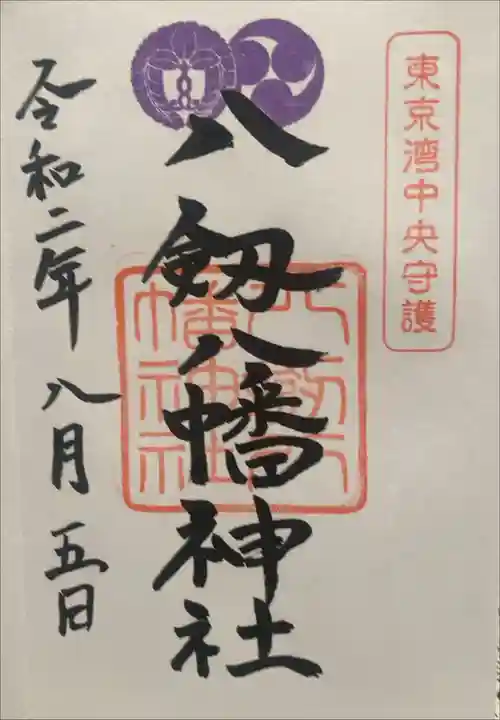 東京湾中央守護
八剱八幡神社
八剱八
幡神社
令和二年八月五日